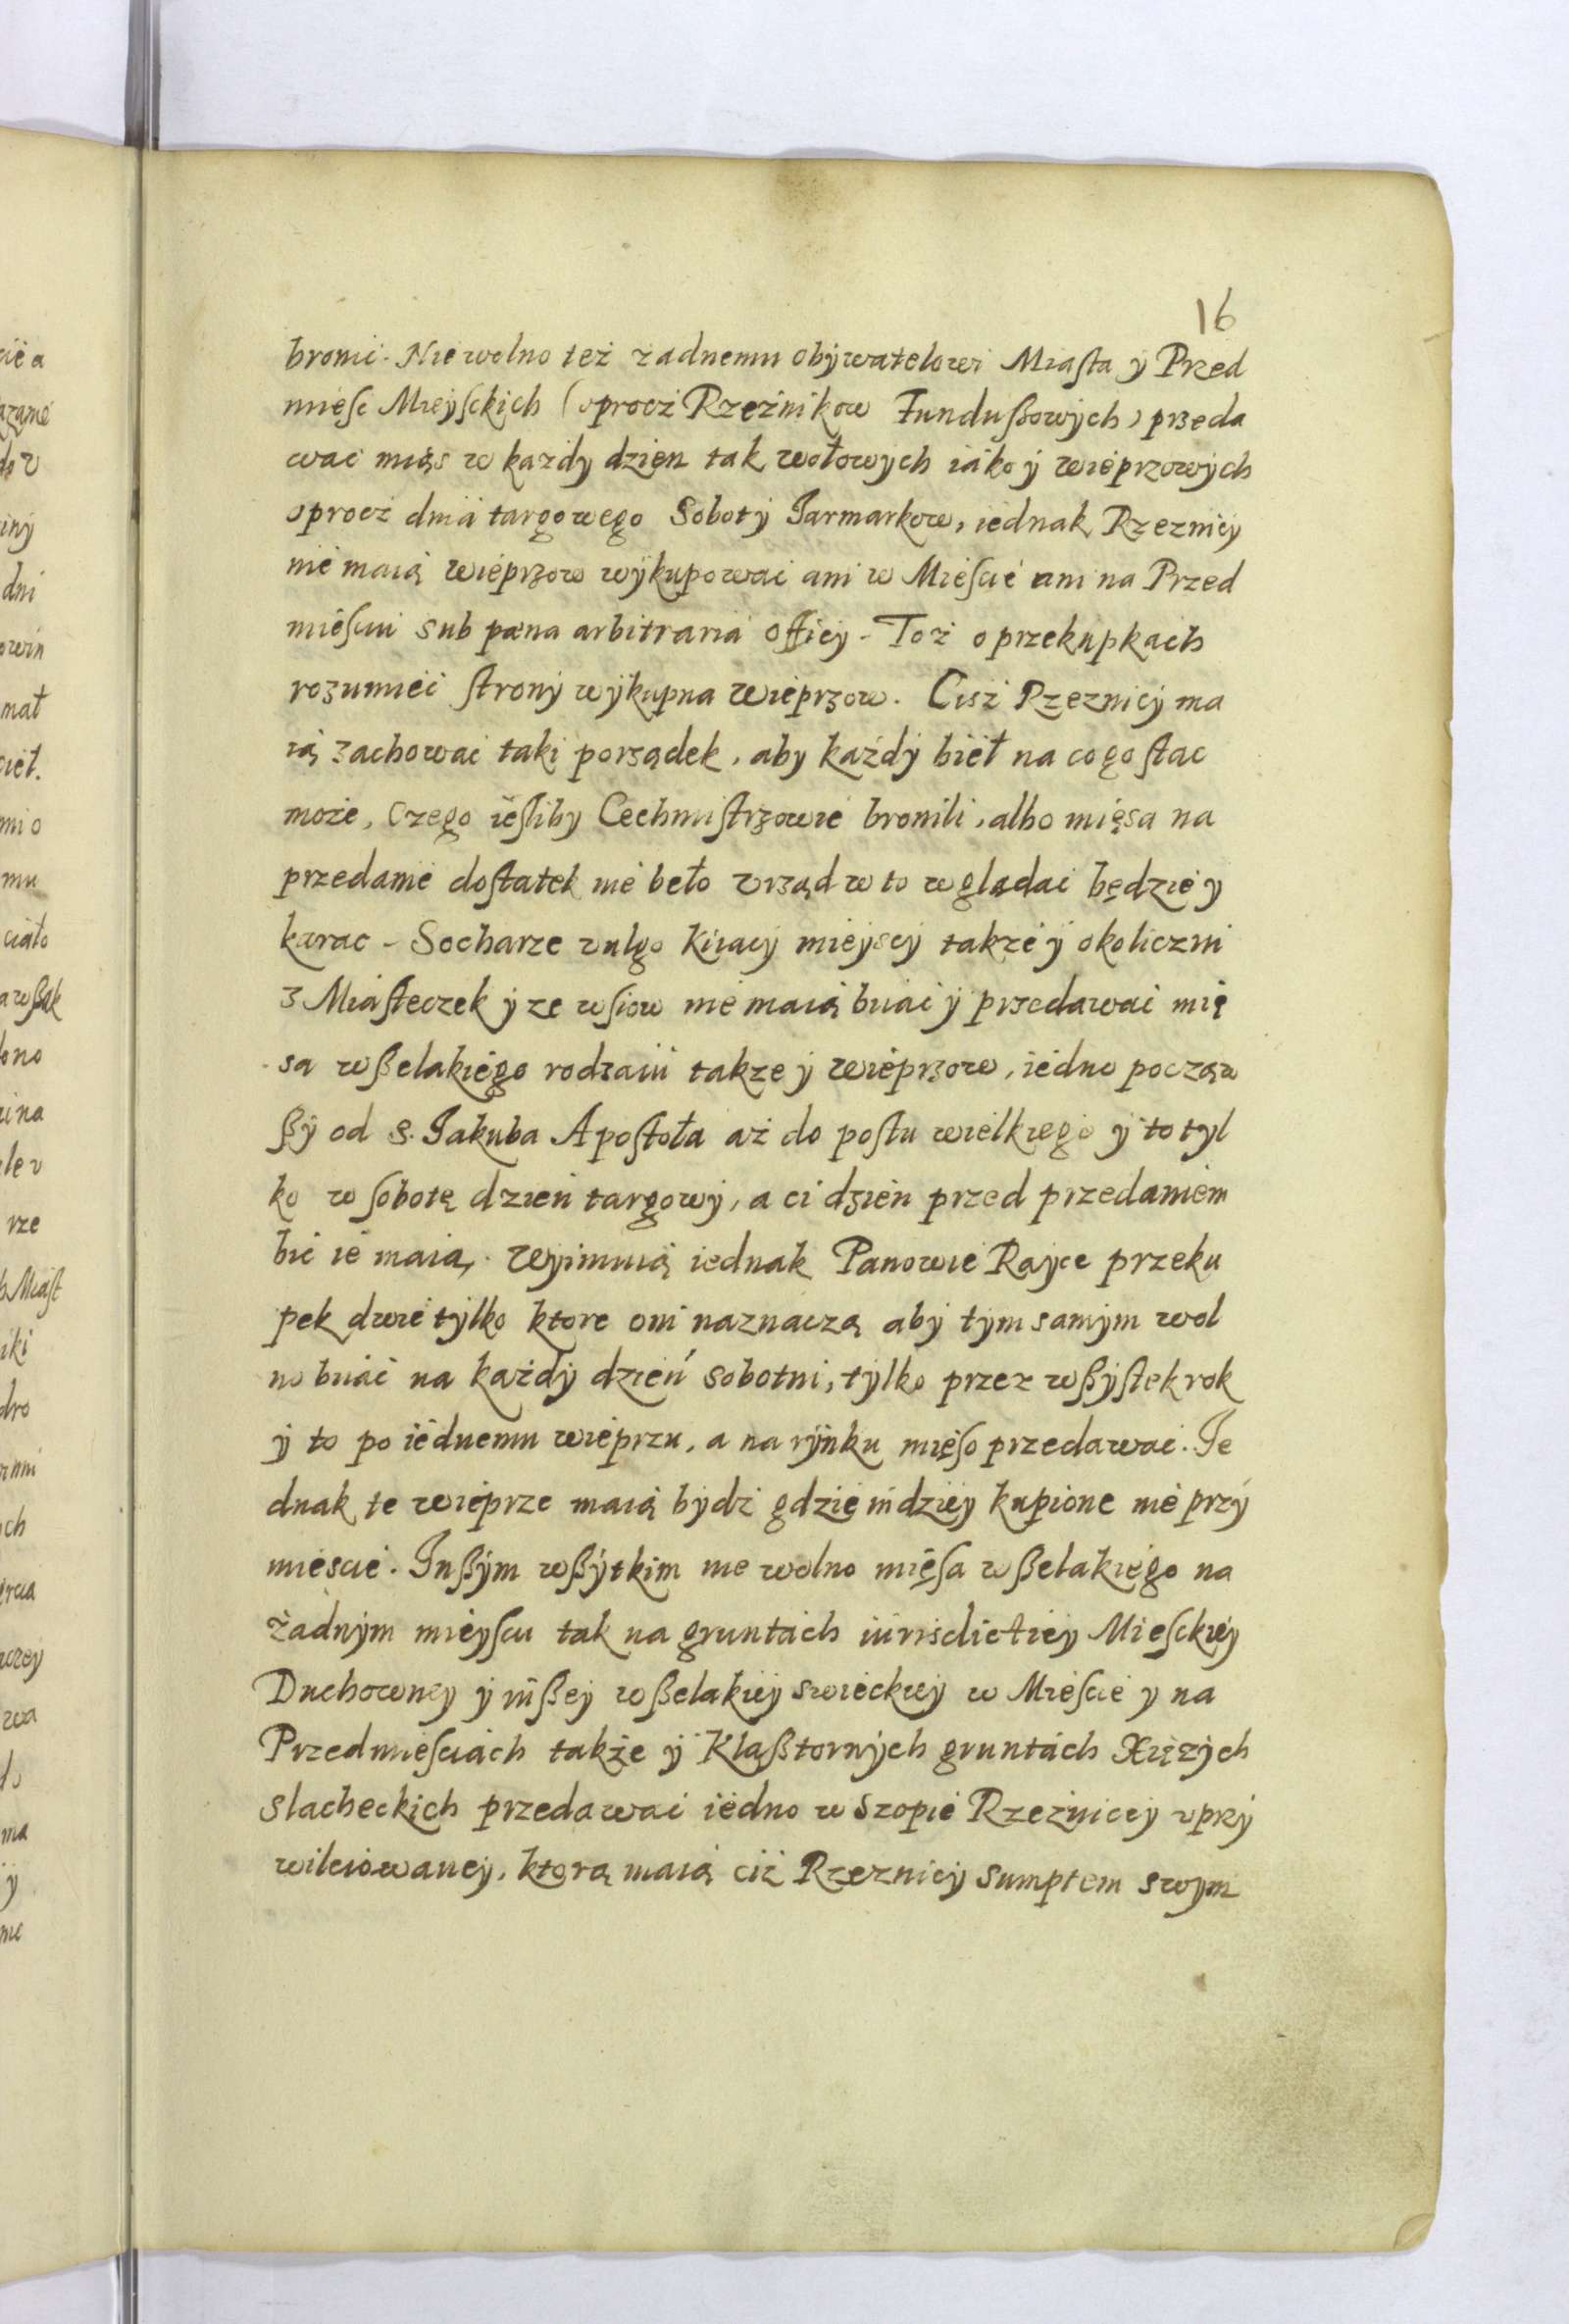 16
bronić. Nie wolno też żadnemu obÿwatelowi Miasta ÿ Przed
mieśc Mieyſckich (oprocż Rzeźnikow Fundußowÿch) przeda
wać mięs w kazdy dzien tak wołowych iáko ÿ wieprzowÿch
oprocż dniá targowego Sobotÿ Jarmarkow, iednak Rzeznicÿ
nie maią wieprzow wÿkupowáć ani w Mieście ani na Przed
mieściu sub pæna arbitraria Officÿ. Toż o przekupkach
rozumieć ſtronÿ wÿkupna wieprzow. Ciż Rzeznicÿ ma
ią zachować taki porządek, aby każdÿ bieł na co go ſtac
może, Czego ieſliby Cechmiſtrzowie bronili, albo mięsa na
przedanie doſtatek nie beło vrząd w to wglądać będzie y
karac - Socharze vulgo Kiiacÿ mieÿscÿ takze ÿ okoliczni
z Miaſteczek ÿ ze wſiow nie maią biiać ÿ przedawać mię
sa wßelakiego rodzaiu takze ÿ wieprzow, iedno począw
ßÿ od S. Jakuba Apoſtoła aż do poſtu wielkiego ÿ to tyl
ko w ſobotę dzień targowÿ, a ci dzień przed przedaniem
bić ie maią. Wyimuią iednak Panowie Rayce przeku
pek dwie tÿlko ktore oni naznaczą abÿ tÿm samÿm wol
no biiać na każdÿ dzień sobotni, tÿlko przez wßÿſtek rok
ÿ to po iednemu wieprzu, a na rÿnku mięſo przedawać. Je
dnak te wieprze maią bydź gdzie indzieÿ kupione nie przÿ
mieście. Inßÿm wßÿtkim nie wolno mięſa wßelakiego na
żadnÿm mieyſcu tak na gruntach iurisdictieÿ Mieſckieÿ
Duchowney ÿ inßeÿ wßelakieÿ swieckieÿ w Mieście y na
Przedmieściách także ÿ Klaßtornÿch gruntách Xiężÿch
slacheckich przedawać iedno w Szopie Rzeźniceÿ vprzÿ
wileiowaneÿ, ktorą maią ciż Rzeznicÿ sumptem swym